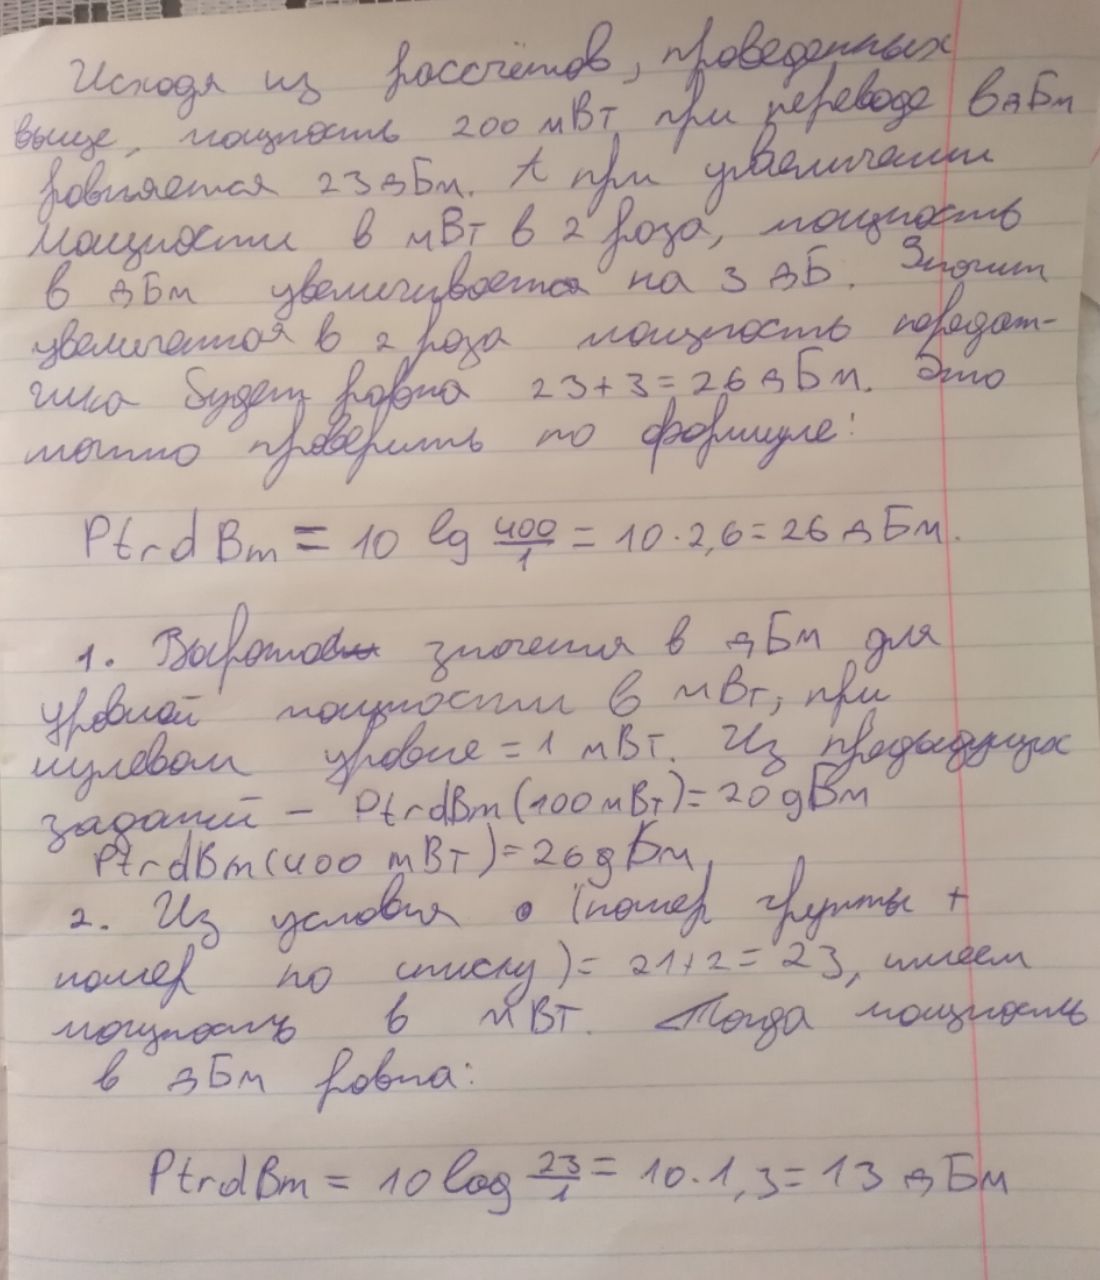 Исходя из рассчётов, проведенных
выше, мощность 200 мВт при переводе в дБм
ровняется 23 дБм. А при увеличении
мощности в мВт в 2 раза, мощность
в дБм увеличивается на 3 дБ. Значит
увеличенная в 2 раза мощность передат-
чика будет равна 23+3=26 дБм. Это
можно проверить по формуле:
PtrdBm = 10 lg 400/1 = 10·2,6=26 дБм.
1. значения в дБм для
уровней мощности в мВт, при
нулевом уровне = 1 мВт. Из предыдущих
заданий - PtrdBm(100 мВт)=20дБм
PtrdBm(400 мВт)=26дБм
2. Из условия (номер группы +
номер по списку)= 21+2=23, имеем
мощность в мВт. Тогда мощность
в дБм равна:
PtrdBm = 10 log 23/1 = 10·1,3=13 дБм